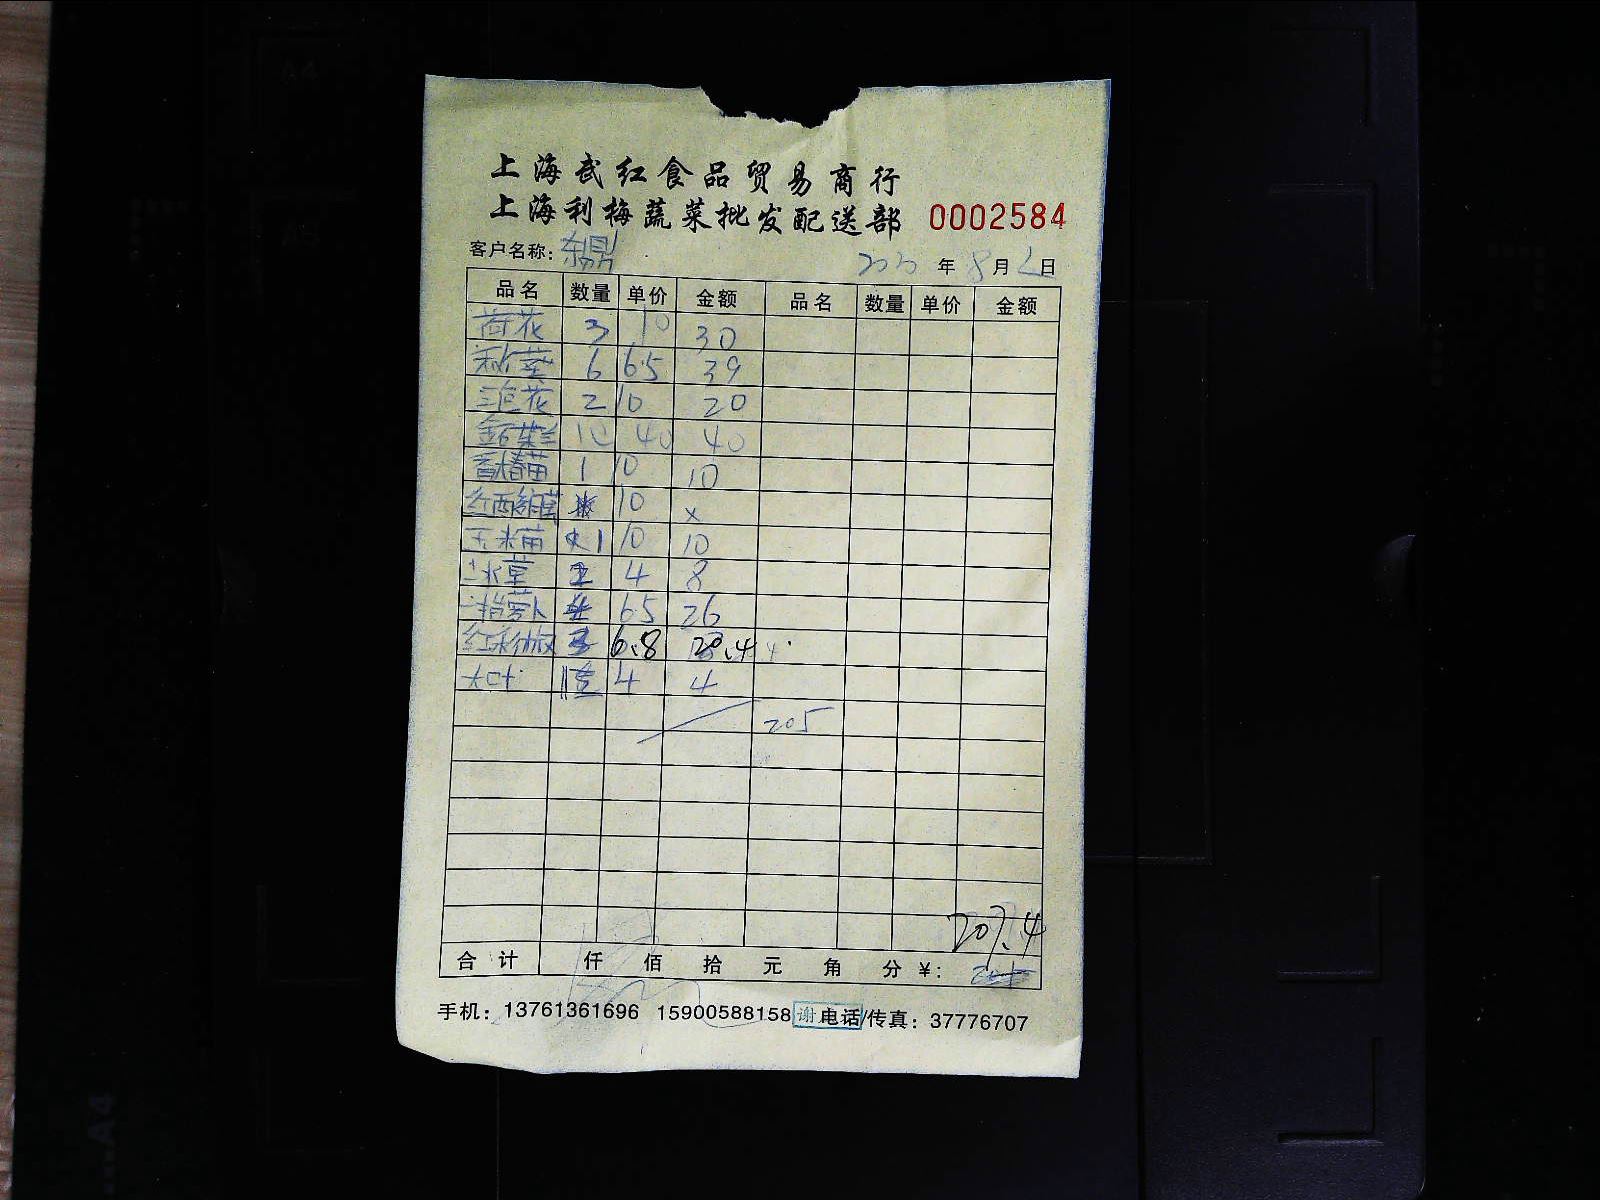 上海武红食品贸易商行
上海利梅蔬菜批发配送部 0002584
客户名称: 东鼎 2020年8月2日
品名 数量 单价 金额 品名 数量 单价 金额
荷花 3 10 30
秋葵 6 6.5 39
三色花 2 10 20
10 40 40
香椿苗 1 10 10
10 x
玉米苗 1 10 10
冰草 2 4 8
萝卜 6.5 26
红 6.8 20.4
4 4
205
207.4
合计 仟 佰 拾 元 角 分 ¥:
手机: 13761361696 15900588158 谢 电话/传真: 37776707
A4
A5
A4